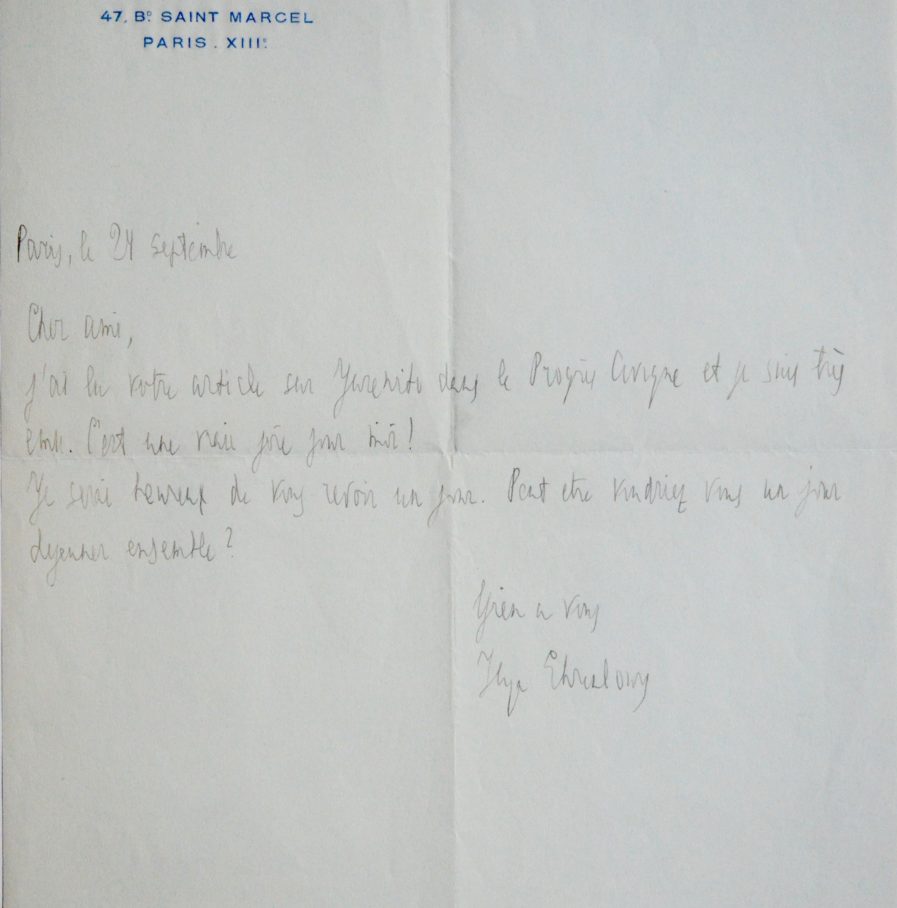 47. Bᴰ SAINT MARCEL
PARIS . XIIIᴱ.
Paris, le 24 septembre
Cher ami,
j'ai lu votre article sur Jurenito dans le Progrès Civique et je suis très
ému. C'est une vraie joie pour moi!
Je serai heureux de vous revoir un jour. Peut etre viendriez vous un jour
dejeuner ensemble?
Bien a vous
Ilya Ehrenbourg